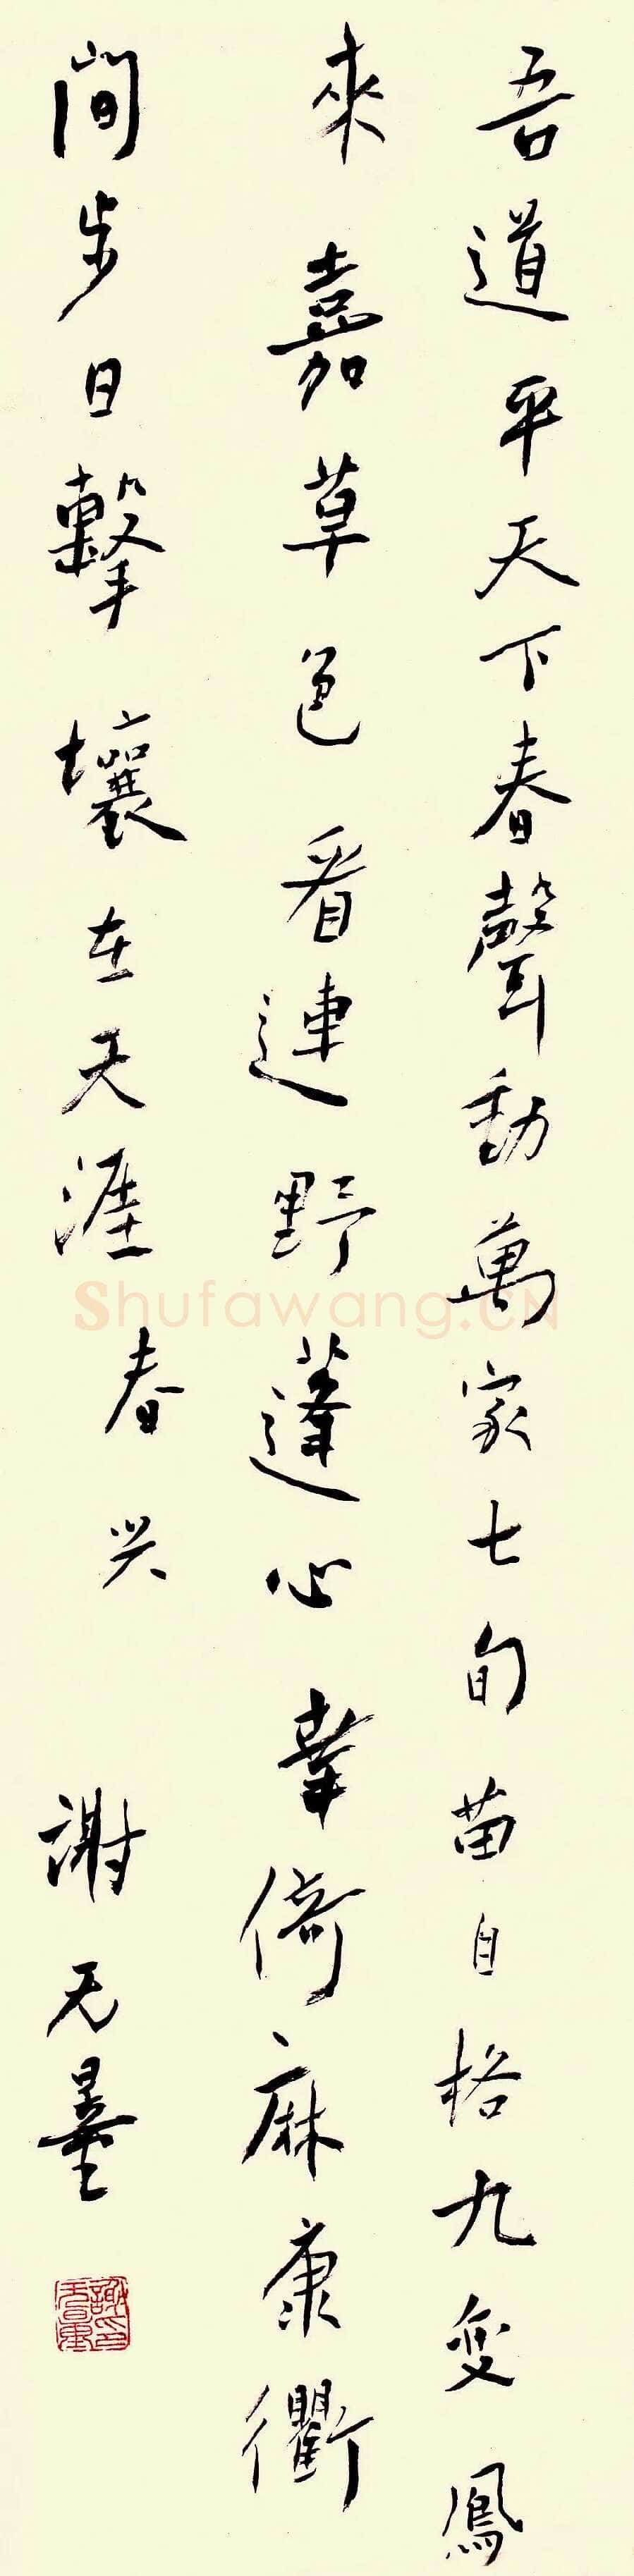 吾道平天下春聲動萬家七旬苗自格九變鳳
來嘉草色看連野蓬心幸倚麻康衢
閒步日擊壤在天涯
春興
謝无量
謝无量印
Shufawang.CN